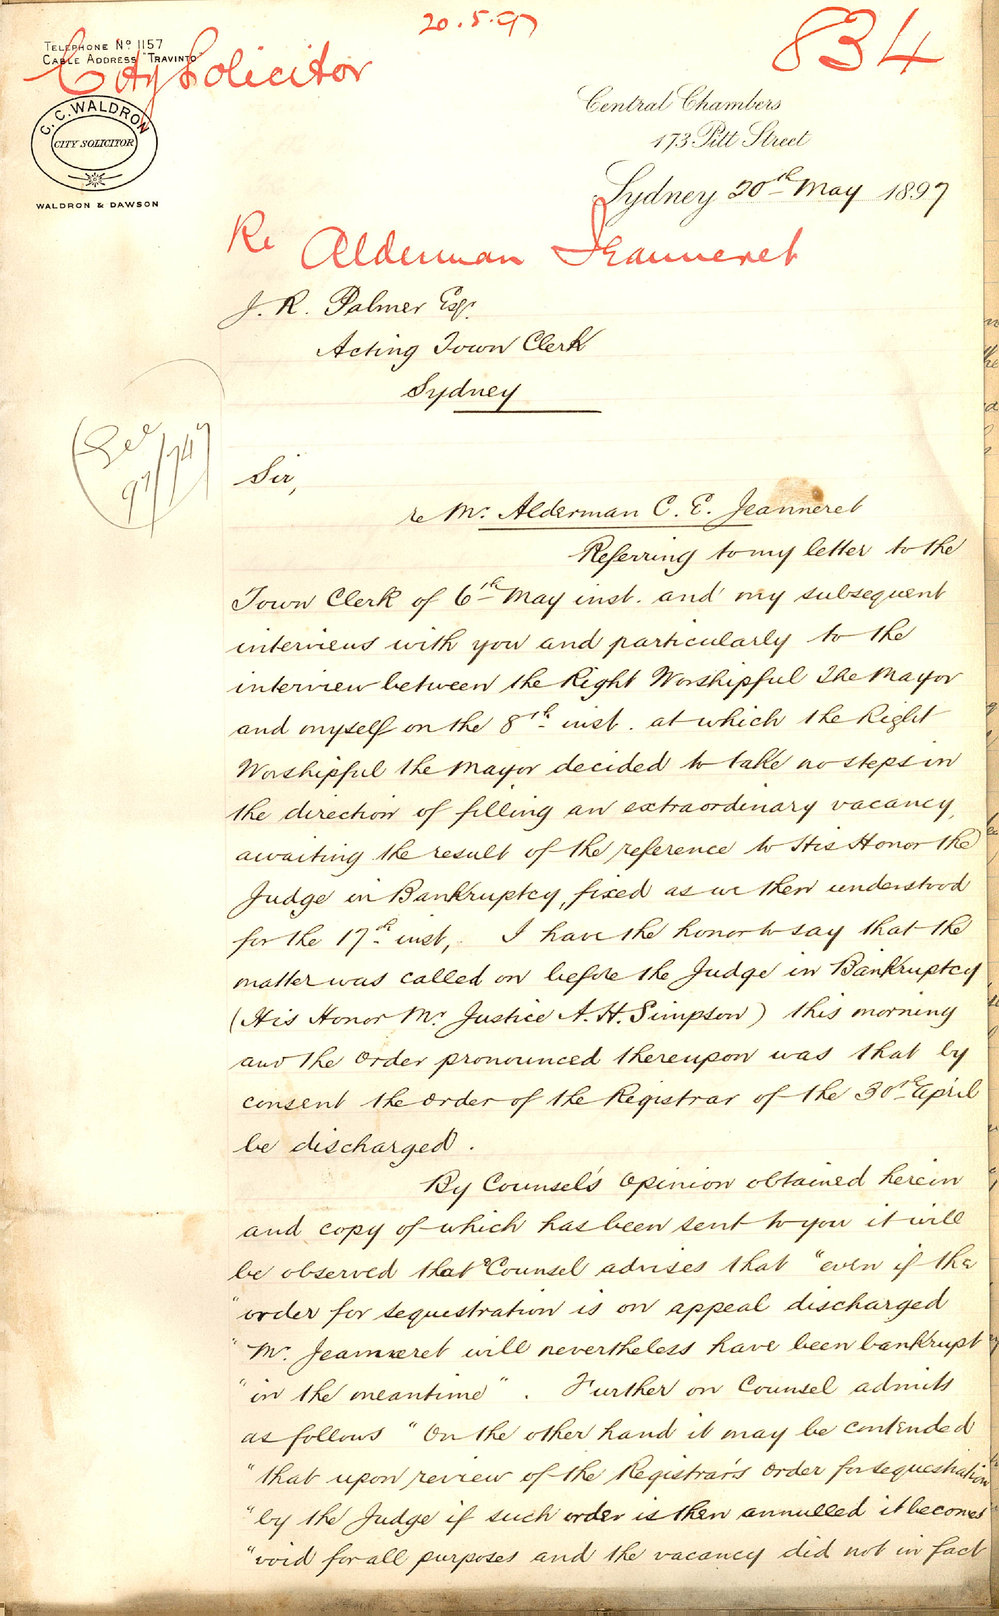 20.5.97
834
TELEPHONE No 1157
CABLE ADDRESS "TRAVINTO"
City Solicitor
C. C. WALDRON
CITY SOLICITOR
WALDRON & DAWSON
Central Chambers
173 Pitt Street
Sydney 20th May 1897
Re Alderman Jeanneret
J. R. Palmer Esqr.
Acting Town Clerk
Sydney
(See
97/747)
Sir,
re Mr. Alderman C. E. Jeanneret
Referring to my letter to the
Town Clerk of 6th May inst. and my subsequent
interviews with you and particularly to the
interview between the Right Worshipful The Mayor
and myself on the 8th inst. at which the Right
Worshipful the Mayor decided to take no steps in
the direction of filling an extraordinary vacancy,
awaiting the result of the reference to His Honor the
Judge in Bankruptcy, fixed as we then understood
for the 17th inst, I have the honor to say that the
matter was called on before the Judge in Bankruptcy
(His Honor Mr Justice A. H. Simpson) this morning
and the order pronounced thereupon was that by
consent the order of the Registrar of the 30th April
be discharged.
By Counsel's Opinion obtained herein
and copy of which has been sent to you it will
be observed that Counsel advises that "even if the
"order for sequestration is on appeal discharged
"Mr. Jeanneret will nevertheless have been bankrupt
"in the meantime". Further on Counsel admits
as follows "On the other hand it may be contended
"that upon review of the Registrar's order for sequestration
"by the Judge if such order is then annulled it becomes
"void for all purposes and the vacancy did not in fact